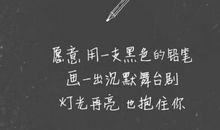 愿意用一支黑色的铅笔
画一出沉默舞台剧
灯光再亮 也抱住你